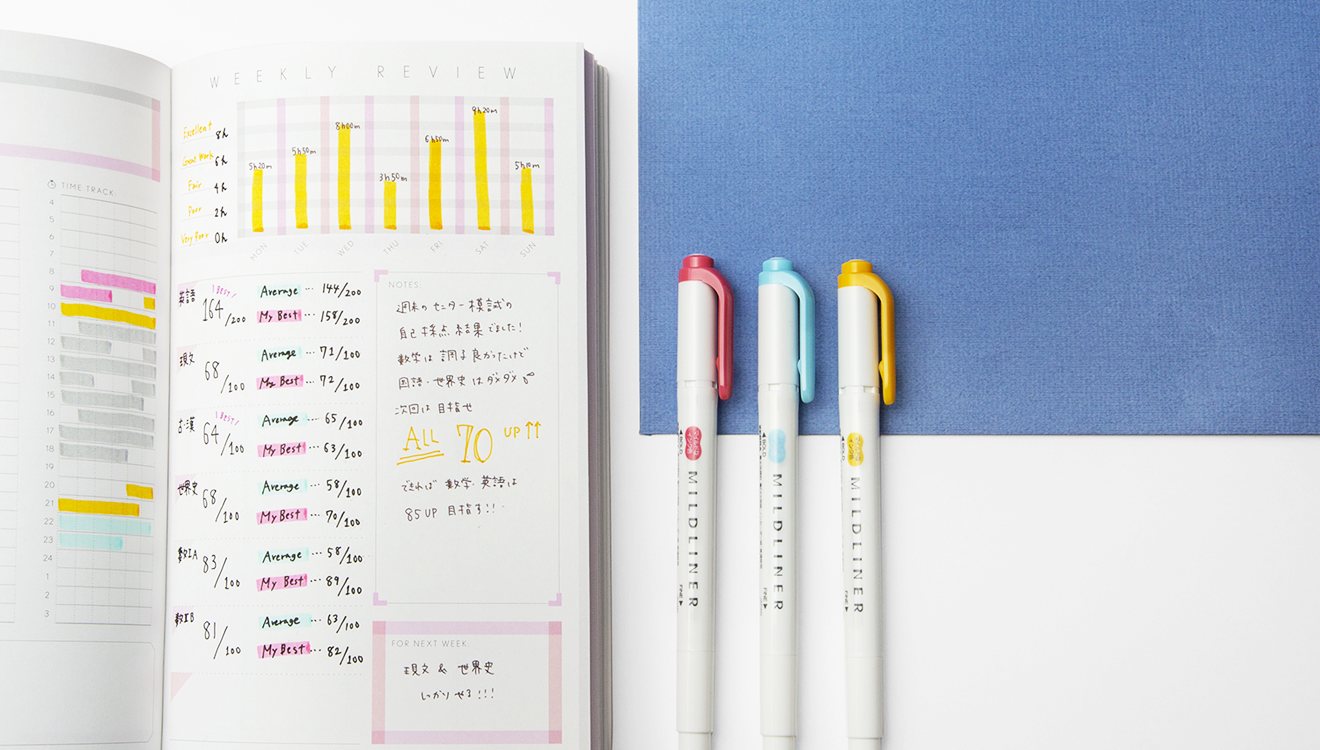 TIME TRACK:
4
5
6
7
8
9
10
11
12
13
14
15
16
17
18
19
20
21
22
23
24
1
2
3
WEEKLY REVIEW
Excellent 8h
Good Work 6h
Fair 4h
Poor 2h
Very Poor 0h
5h20m
5h50m
8h00m
3h50m
6h50m
9h20m
5h10m
MON TUE WED THU FRI SAT SUN
英語 1 Best! 164/200
Average … 144/200
My Best … 158/200
現文 68/100
Average … 71/100
My Best … 72/100
古・漢 1 Best! 64/100
Average … 65/100
My Best … 63/100
世界史 68/100
Average … 58/100
My Best … 70/100
数ⅠA 83/100
Average … 58/100
My Best … 89/100
数ⅡB 81/100
Average … 63/100
My Best … 82/100
NOTES:
週末のセンター模試の
自己採点結果でました!
数学は調子良かったけど
国語・世界史はダメダメ
次回は目指せ
ALL 70 UP↑↑
できれば数学・英語は
85UP 目指す!!
FOR NEXT WEEK:
現文 & 世界史
しっかりやる!!!
BOLD
マイルドライナー
MILDLINER
FINE
BOLD
MILDLINER
FINE
BOLD
MILDLINER
FINE